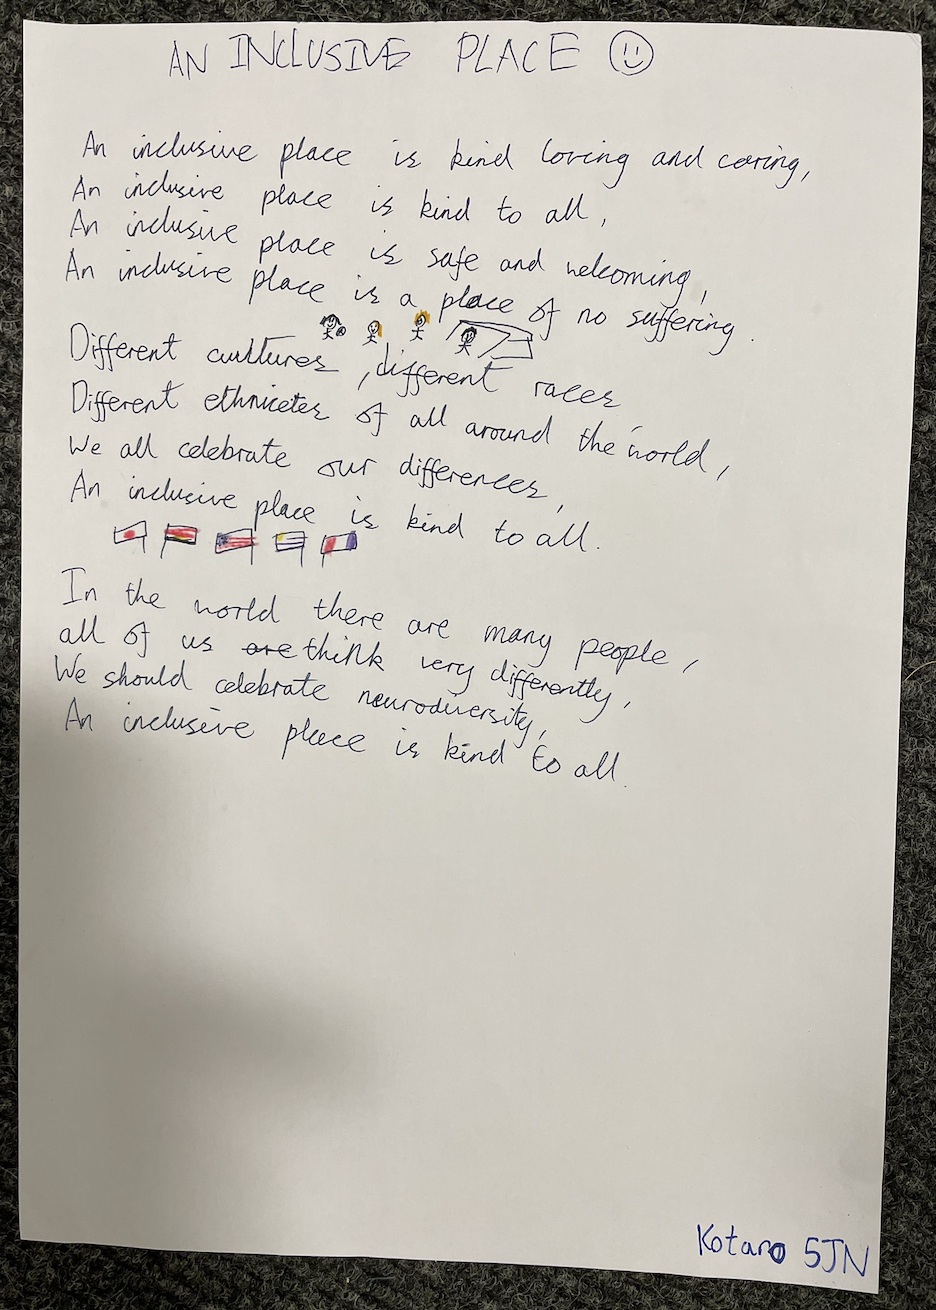 AN INCLUSIVE PLACE
An inclusive place is kind loving and caring,
An inclusive place is kind to all,
An inclusive place is safe and welcoming,
An inclusive place is a place of no suffering.
Different cultures, different races
Different ethniceter of all around the world,
We all celebrate our differences,
An inclusive place is kind to all.
In the world there are many people,
all of us are think very differently,
We should celebrate neurodiversity,
An inclusive place is kind to all.
Kotaro 5JN